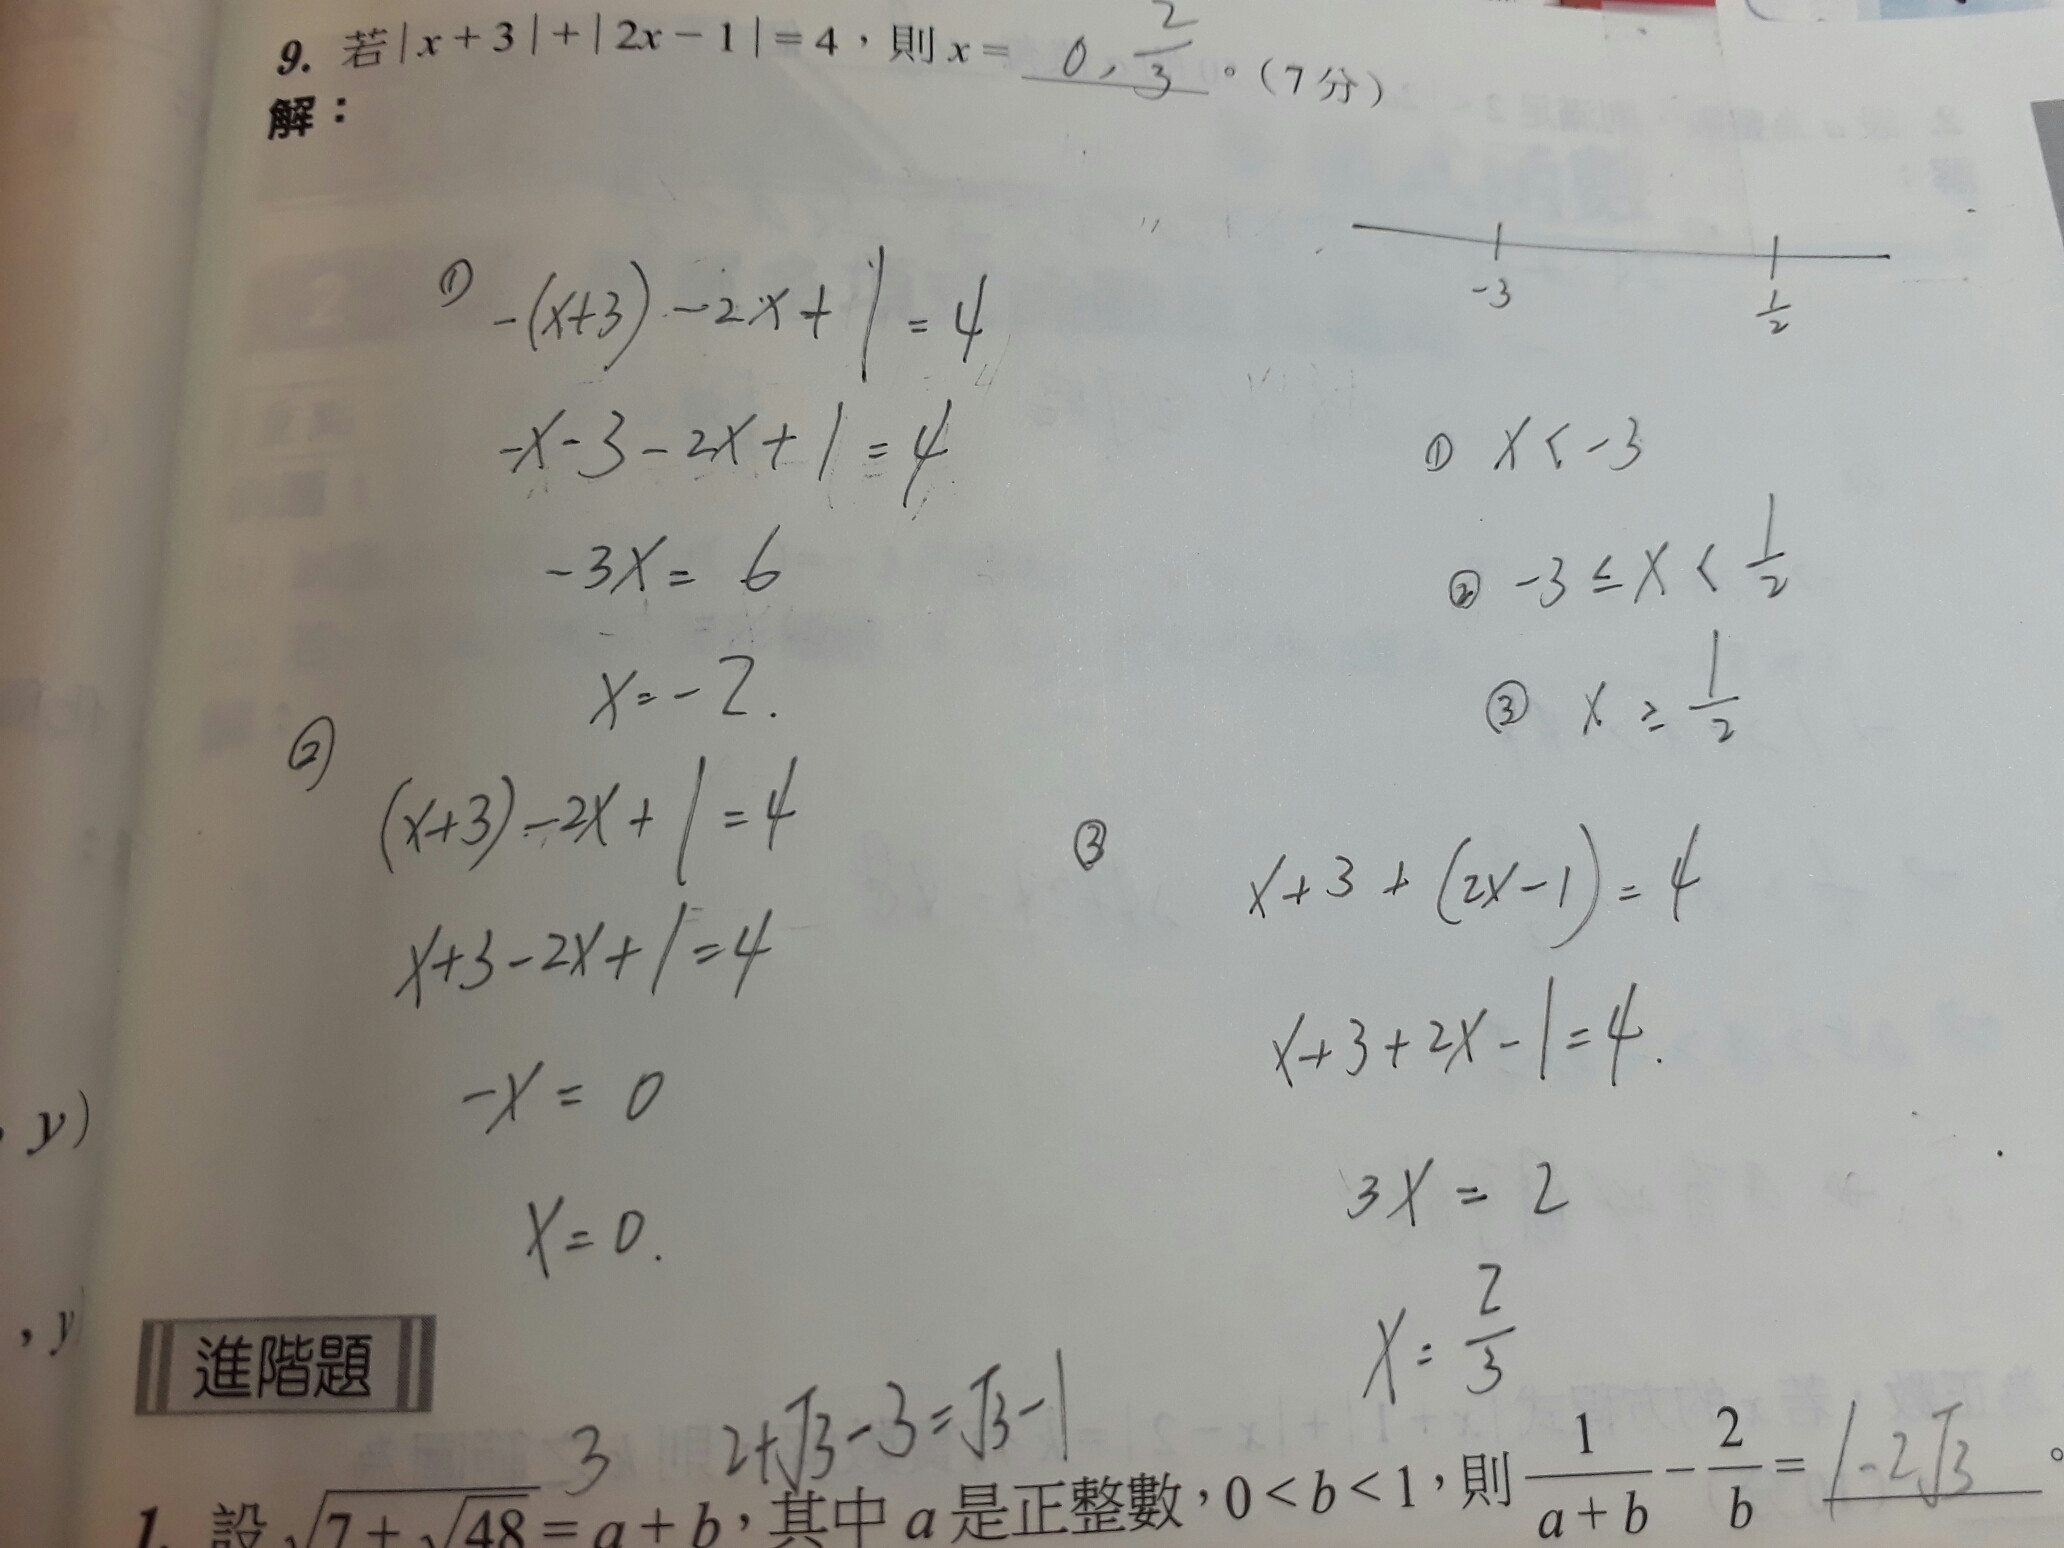 9. 若|x+3|+|2x-1|=4，則x= 0, 2/3 。(7分)
解：
-3 1/2
① -(x+3)-2x+1=4
-x-3-2x+1=4
-3x=6
x=-2.
① x<-3
② -3≤x<1/2
③ x≥1/2
②
(x+3)-2x+1=4
x+3-2x+1=4
-x=0
x=0.
③
x+3+(2x-1)=4
x+3+2x-1=4.
3x=2
x=2/3
, y)
, y)
進階題
3 2+√3-3=√3-1
1. 設√(7+√48)=a+b，其中a是正整數，0<b<1，則1/(a+b)-2/b= 1-2√3 。